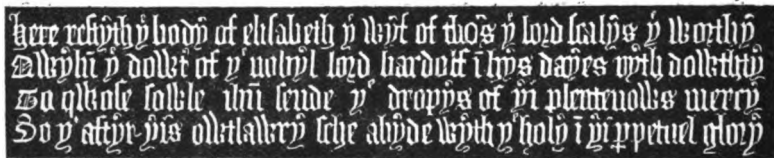 here restyth yͤ body of elisabeth yͤ wyf of thoᵐs yͤ lord scalys yͤ worthy
yͤ dowt̾ of yͤ nobyl lord bardolf ī hys dayes myth dowthty
To qwose sowle ihū sende yͤ dropys of yi plentevows mercy
So yᵗ aftyr yis owtlawery sche abyde wyth yͤ holy ī yi ꝑpetuel glory